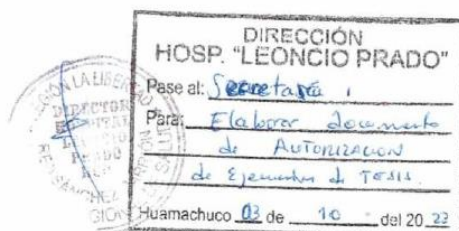 DIRECCIÓN
HOSP. "LEONCIO PRADO"
Pase al: Secretaría
Para: Elaborar documento
de AUTORIZACION
de Ejecución de TESIS.
Huamachuco 03 de 10 del 2023
LA LIBERTAD
DIRECTOR
PRADO
RED SÁNCHEZ